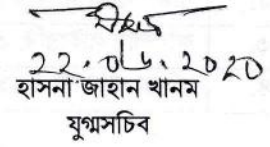 22.06.2020
হাসনা জাহান খানম
যুগ্মসচিব